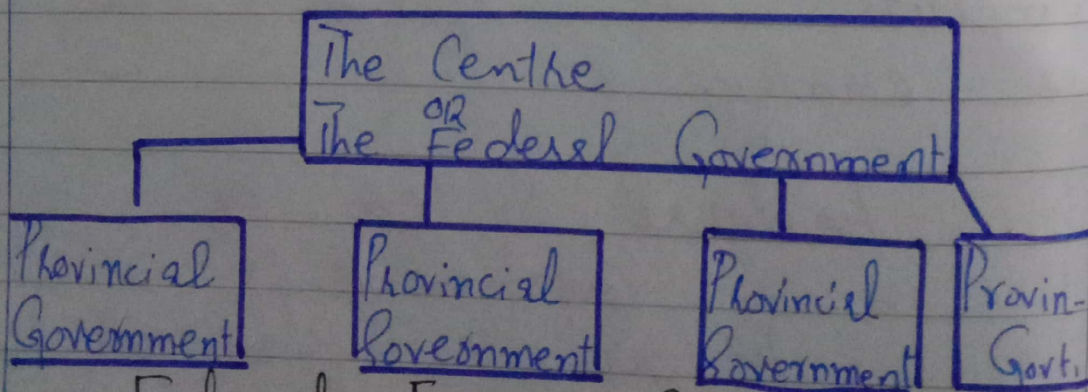 The Centre
OR
The Federal Government
Provincial
Government
Provincial
Government
Provincial
Government
Provin-
Govt.